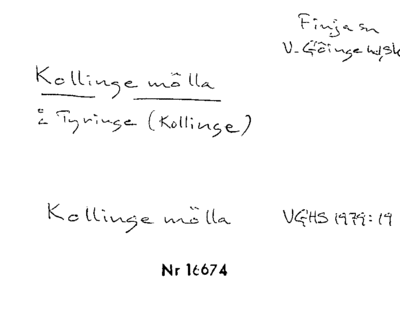 Finja sn
V. Göinge hd, Sk
Kollinge mölla
i Tyringe (Kollinge)
Kollinge mölla VGHS 1979:19
Nr 16674